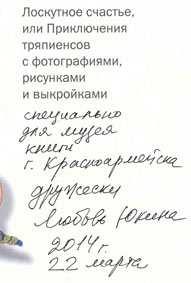 Лоскутное счастье,
или Приключения
тряпиенсов
с фотографиями,
рисунками
и выкройками
специально
для музея
книги
г. Красноармейска
дружески
Любовь Юкина
2014г.
22 марта